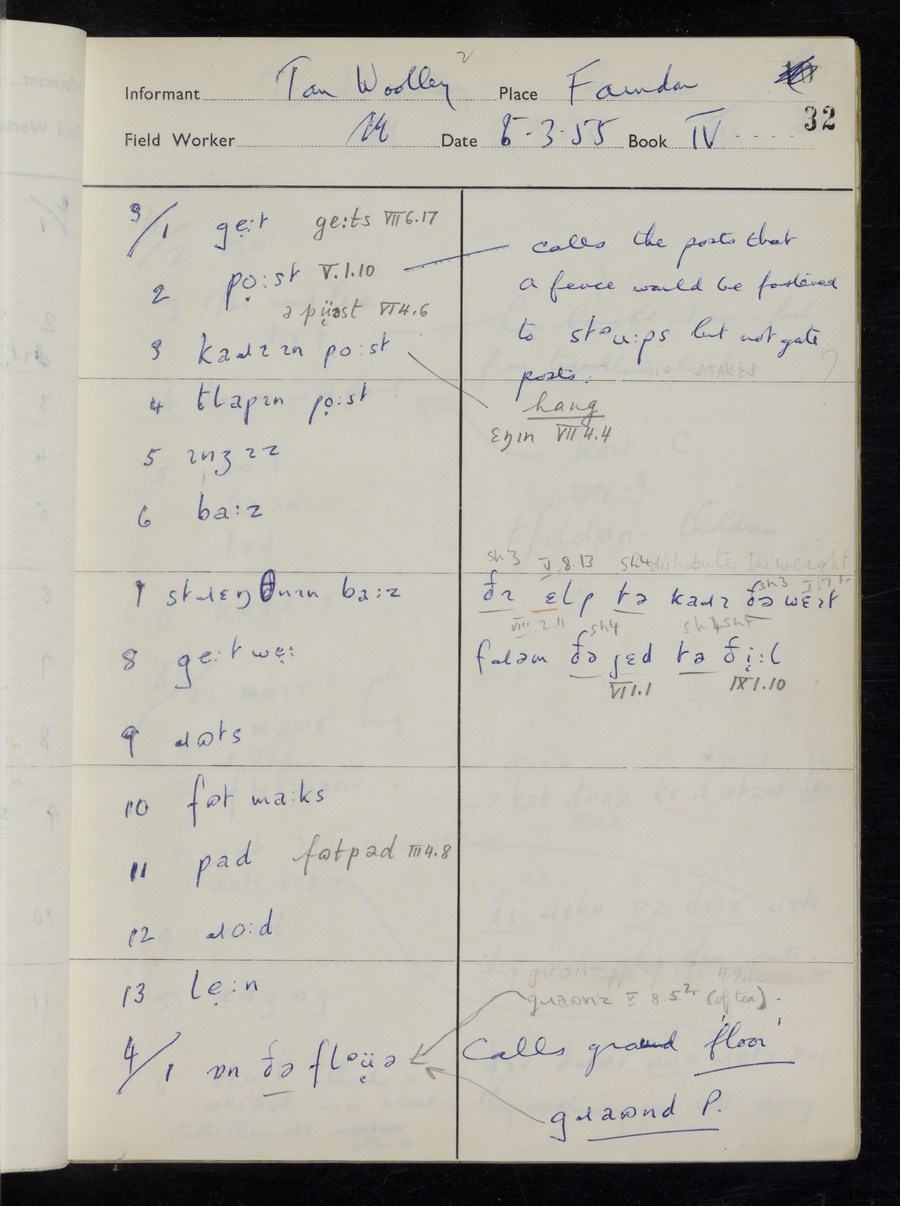 2
Informant Tom Woolley Place Farndon
32
Field Worker Date 5-3-55 Book IV
3/1 geːt geːts VII 6.17
2 poːst V.1.10
ə püəst VI 4.6
3 kaɹɪɪn poːst
4 tlapɪn poːst
5 ɪnʒɪz
6 baːz
7 stɹɛŋθnɪn baːz
8 geːtweː
9 ɹɷts
10 fɷt maːks
11 pad fɷtpad III 4.8
12 ɹoːd
13 leːn
4/1 ɒn ðə flᵊüə
calls the posts that
a fence would be fastened
to stᵊuːps but not gate
posts. ie STAKES
hang
ɛŋɪn VII 4.4
sh3 V.8.13 sh4 distributes the weight
ðɪ ɛlp tə kaɹɪ ðə wɛɪt
sh3
VIII 2.11 sh4
fɹəm ðə ɟɛd tə ðiːl
VI 1.1 IX 1.10
gɹaɷnz V.8.5² (of tea).
Calls ground 'floor'
gɹaɷnd P.